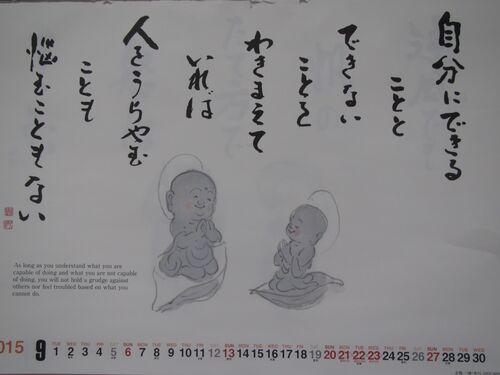 自分にできる
ことと
できない
ことを
わきまえて
いれば
人をうらやむ
ことも
悩むこともない
As long as you understand what you are
capable of doing and what you are not capable
of doing, you will not hold a grudge against
others nor feel troubled based on what you
cannot do.
015 9 TUE 1 WED 2 THU 3 FRI 4 SAT 5 SUN 6 MON 7 TUE 8 WED 9 THU 10 FRI 11 SAT 12 SUN 13 MON 14 TUE 15 WED 16 THU 17 FRI 18 SAT 19 SUN 20 MON 21 TUE 22 WED 23 THU 24 FRI 25 SAT 26 SUN 27 MON 28 TUE 29 WED 30